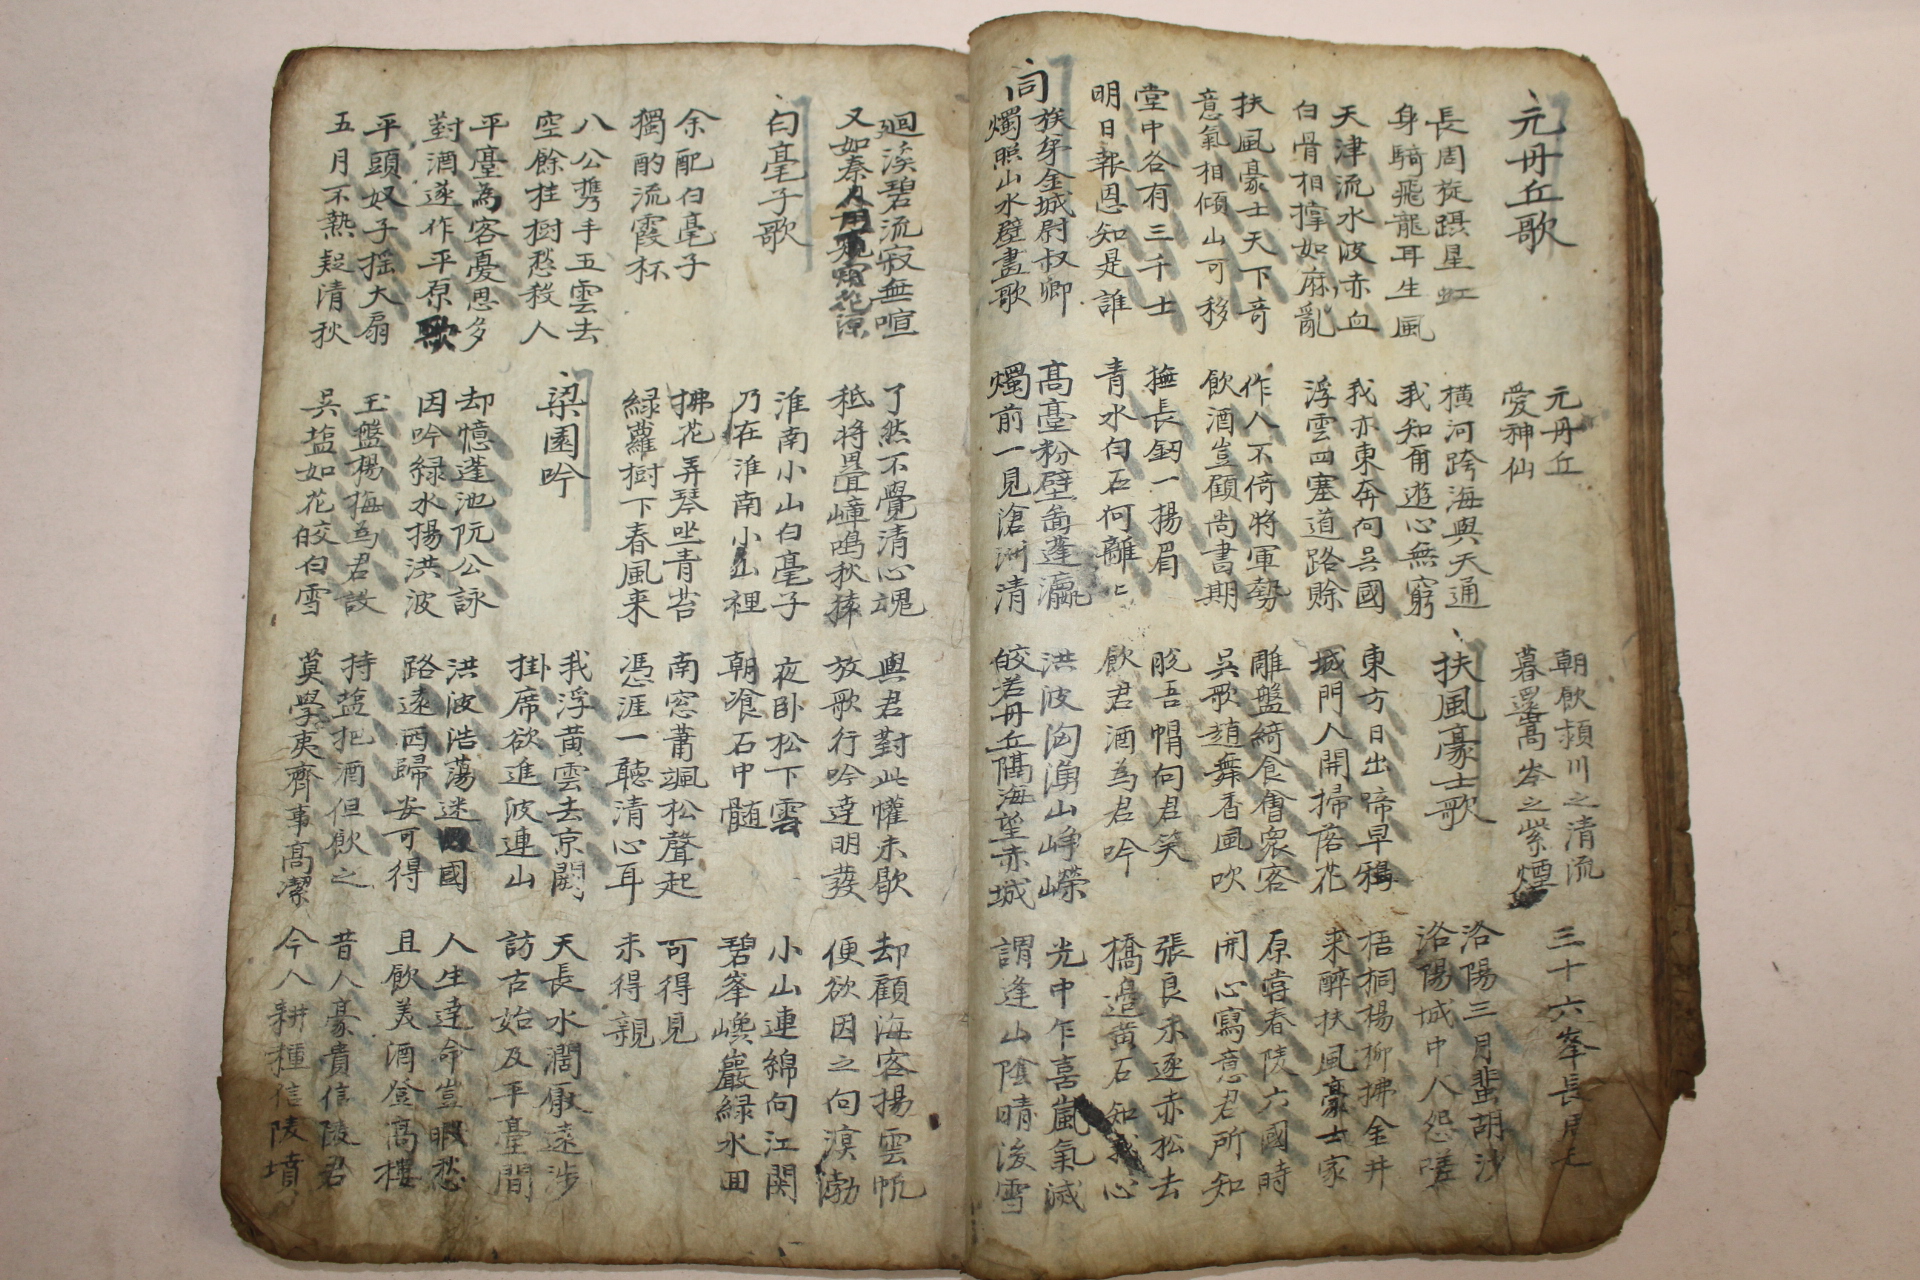 元丹丘歌
元丹丘
愛神仙
朝飮潁川之清流
暮還嵩岑之紫煙
三十六峯長周旋
長周旋躡星虹
身騎飛龍耳生風
橫河跨海與天通
我知甭遊心無窮
扶風豪士歌
洛陽三月蜚胡沙
洛陽城中人怨嗟
天津流水波赤血
白骨相撑如麻亂
我亦東奔向吳國
浮雲四塞道路賒
東方日出啼早鴉
城門人開掃落花
梧桐楊柳拂金井
来醉扶風豪士家
扶風豪士天下奇
意氣相傾山可移
作人不倚將軍勢
飮酒豈顧尚書期
雕盤綺食會衆客
吳歌趙舞香風吹
原嘗春陵六國時
開心寫意君所知
堂中各有三千士
明日報恩知是誰
撫長釼一揚眉
青水白石何離〻
脫吾帽向君笑
飮君酒為君吟
張良未逐赤松去
橋邉黃石知我心
同族弟金城尉叔卿
燭照山水壁畫歌
高臺粉壁圖蓬瀛
燭前一見滄洲清
洪波洶湧山崢嶸
皎若丹丘隔海望赤城
光中乍喜嵐氣滅
謂逢山陰晴後雪
廻溪碧流寂無喧
又如秦人月下窺花源
了然不覺清心魂
秪將疊嶂鳴秋猿
與君對此懽未歇
放歌行吟達明發
却顧海客揚雲帆
便欲因之向溟渤
白毫子歌
淮南小山白毫子
乃在淮南小山裡
夜卧松下雲
朝飡石中髓
小山連綿向江開
碧峯巉巖綠水回
余配白毫子
獨酌流霞杯
拂花弄琴坐青苔
綠蘿樹下春風来
南窓蕭颯松聲起
憑涯一聽清心耳
可得見
未得親
八公携手五雲去
空餘桂樹愁殺人
梁園吟
我浮黃雲去京闕
掛席欲進波連山
天長水濶厭遠涉
訪古始及平臺間
平臺為客憂思多
對酒遂作平原歌
却憶蓬池阮公詠
因吟綠水揚洪波
洪波浩蕩迷國
路遠西歸安可得
人生達命豈暇愁
且飮美酒登高樓
平頭奴子搖大扇
五月不熱疑清秋
玉盤楊梅為君設
吳塩如花皎白雪
持塩把酒但飮之
莫學夷齊事高潔
昔人豪貴信陵君
今人耕種信陵墳